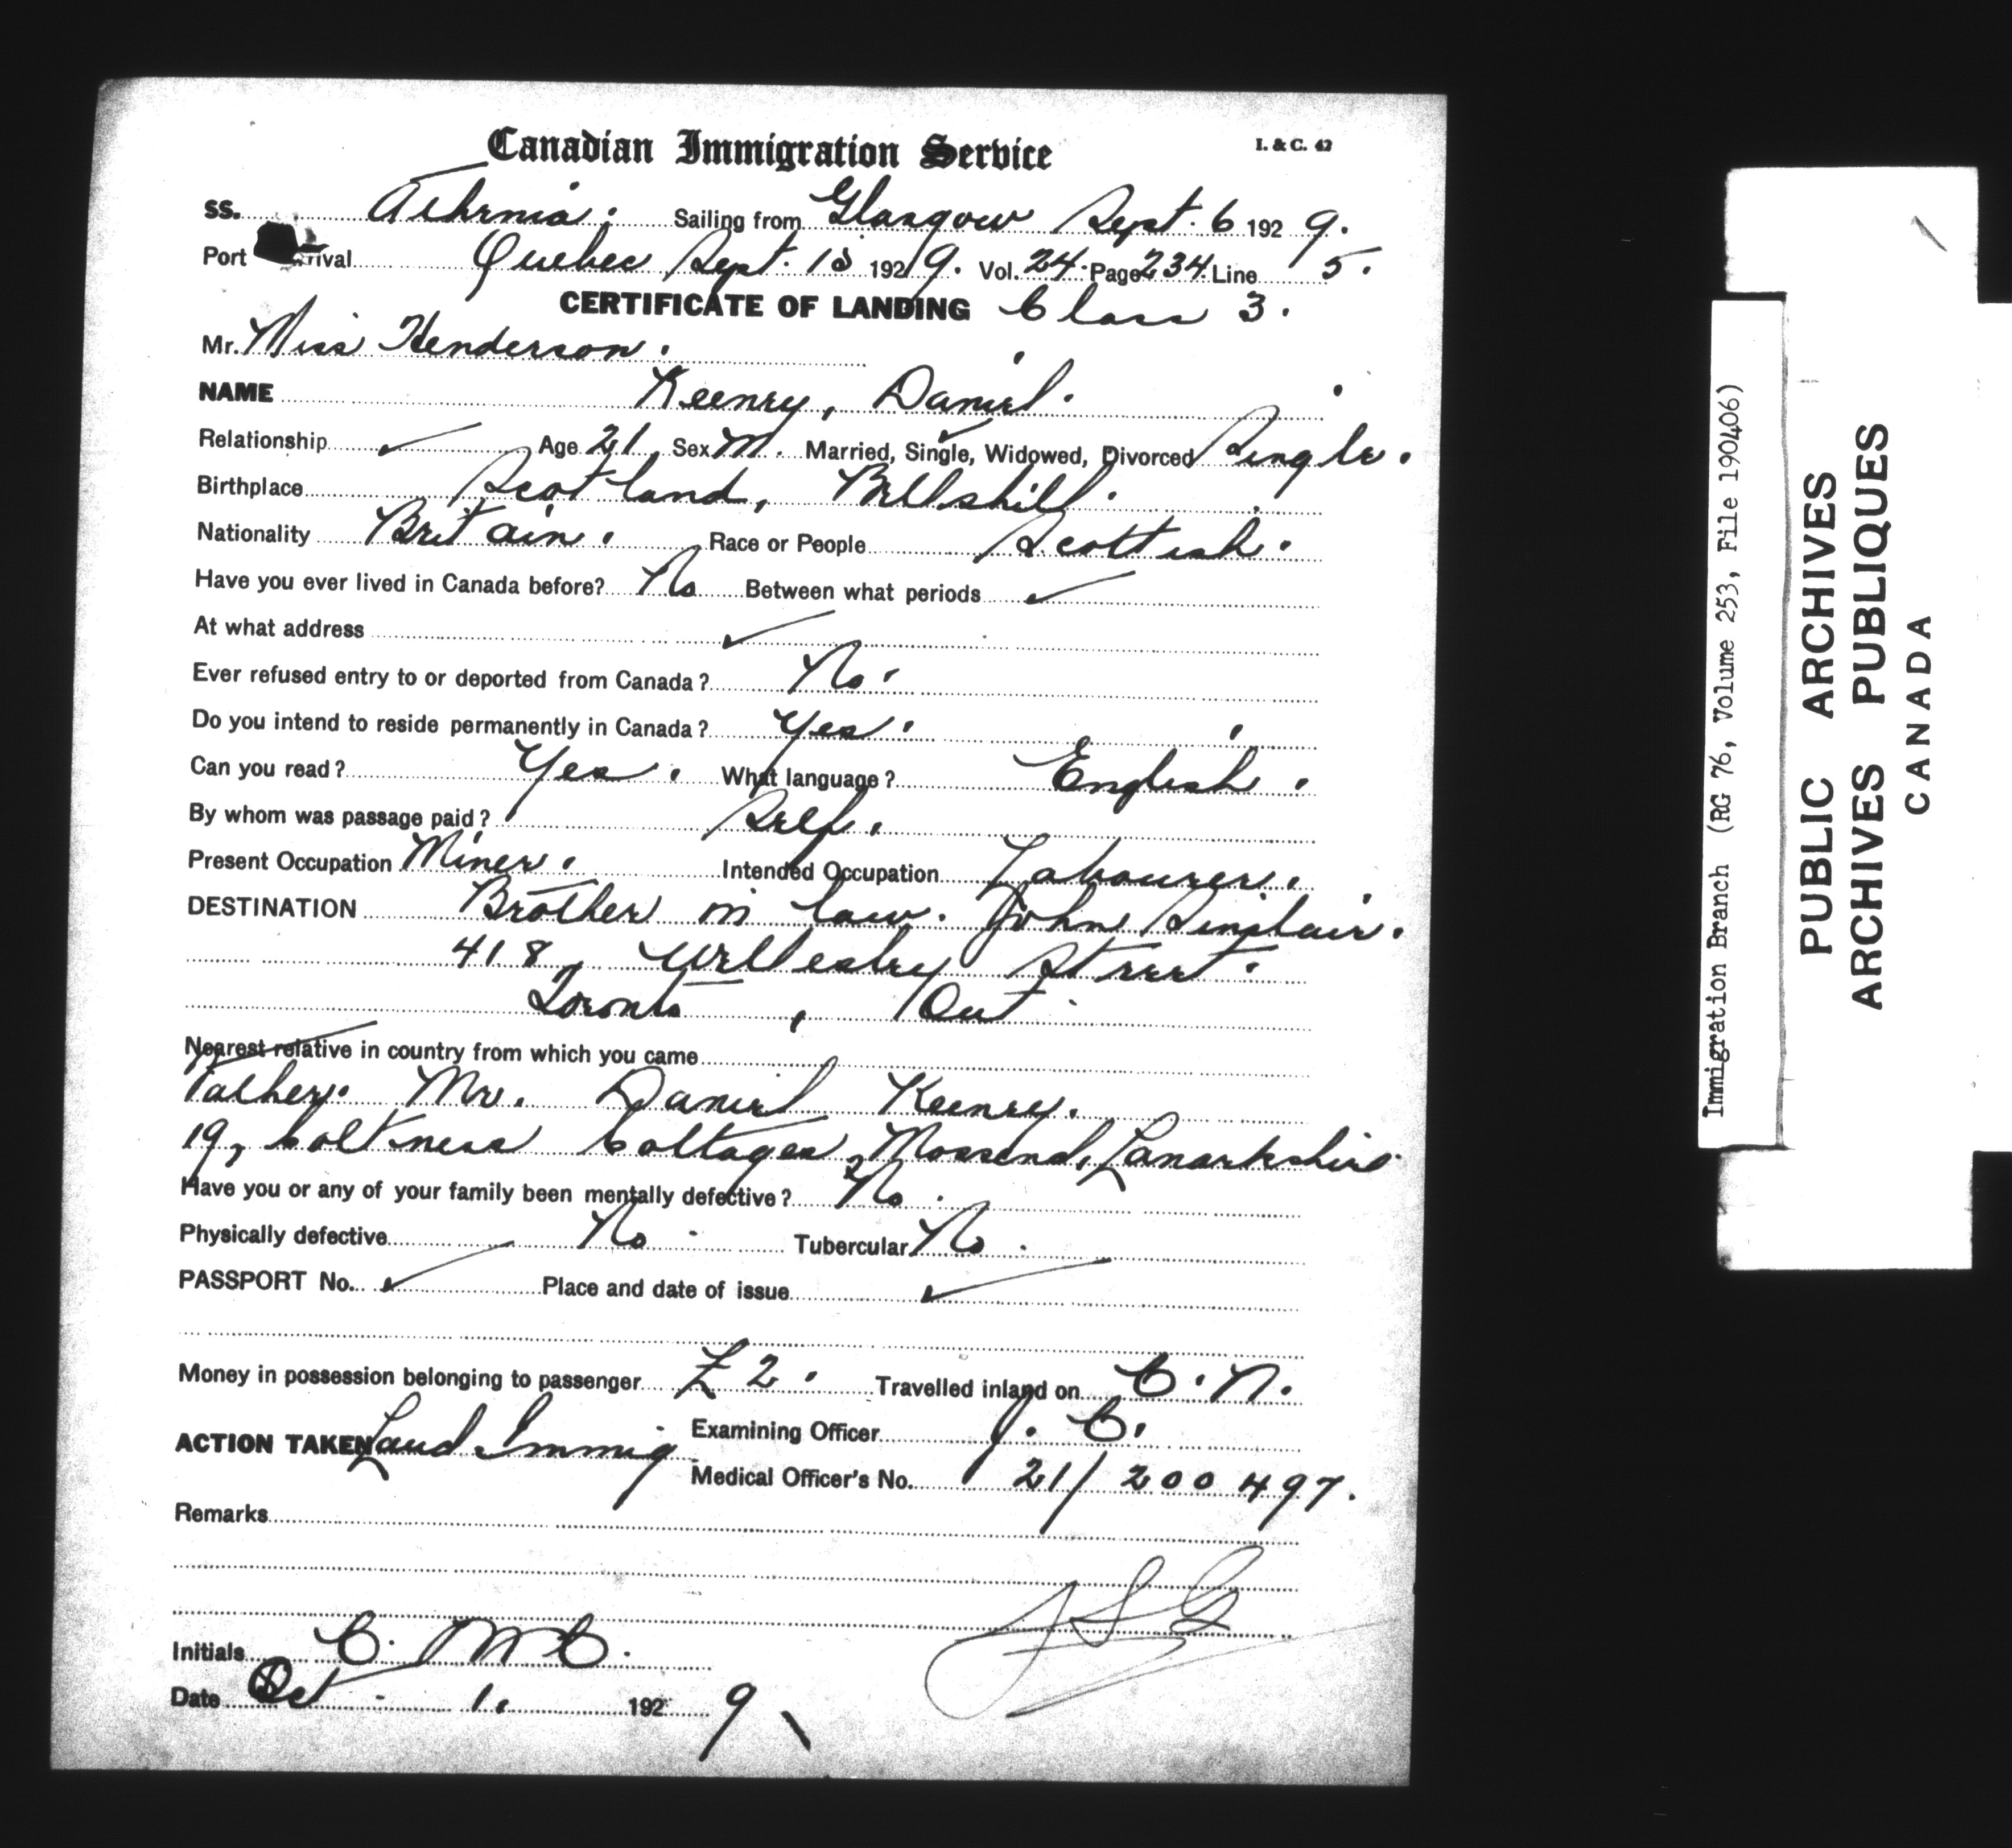 Canadian Immigration Service I. & C. 42
SS. Athenia. Sailing from Glasgow Sept. 6 1929.
Port rival Quebec Sept. 15 1929. Vol. 24. Page 234. Line 5.
CERTIFICATE OF LANDING Class 3.
Mr. Miss Henderson.
NAME Keeney, Daniel.
Relationship Age 21 Sex M. Married, Single, Widowed, Divorced Single.
Birthplace Scotland, Bellshill.
Nationality Britain. Race or People Scottish.
Have you ever lived in Canada before? No Between what periods
At what address
Ever refused entry to or deported from Canada? No.
Do you intend to reside permanently in Canada? Yes.
Can you read? Yes. What language? English.
By whom was passage paid? Self.
Present Occupation Miner. Intended Occupation Labourer.
DESTINATION Brother in law. John Sinclair.
418, Wellesley Street.
Toronto, Ont
Nearest relative in country from which you came
Father. Mr. Daniel Keeney.
19, Coltness Cottages, Mossend, Lanarkshire
Have you or any of your family been mentally defective? No.
Physically defective No. Tubercular No.
PASSPORT No. Place and date of issue
Money in possession belonging to passenger £2. Travelled inland on C.N.
ACTION TAKEN Land Immig Examining Officer J.C.
Medical Officer's No. 21/200497.
Remarks
Initials C. McC.
Date Oct. 1. 1929
Immigration Branch (RG 76, Volume 253, File 190406)
PUBLIC ARCHIVES
ARCHIVES PUBLIQUES
CANADA